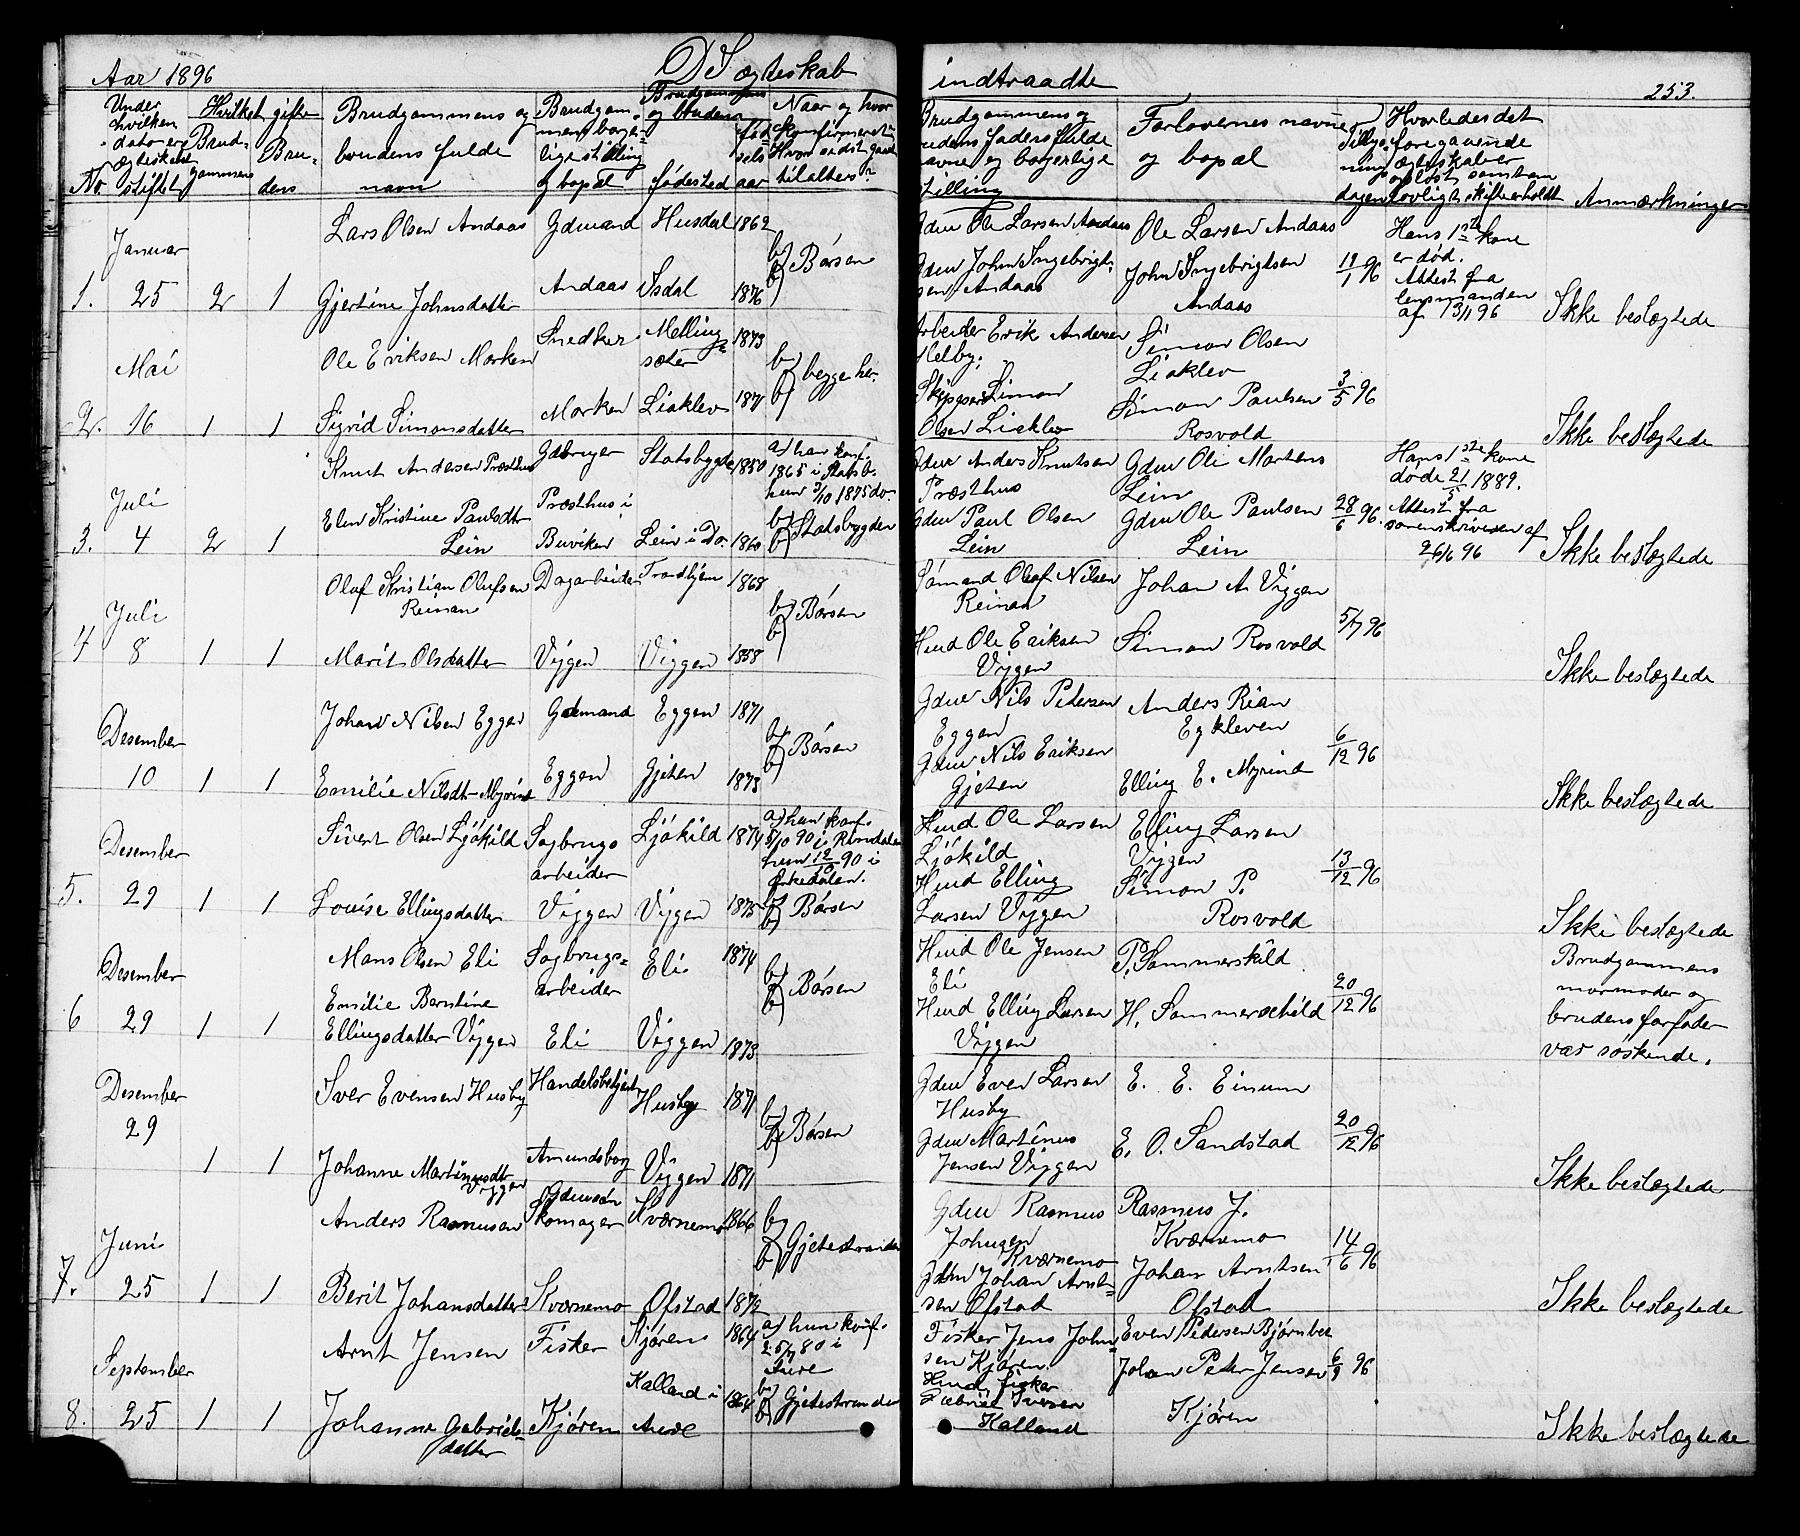 Aar 1896
D I ægteskab
indtraadte
253.
No
Under hvilken dato er ægteskabet stiftet
Hvilket gifte
Brudgammens
Brudens
Brudgammens og brudens fulde navn
Brudgammens borgelige stilling og bopæl
Brudgammens og brudens fødested
fødselsaar
Naar og hvor konfirmeret? Hvor sidst gaaet til alters?
Brudgammens og brudens faders fulde navne og borgerlige stilling
Forlovernes navne og bopæl
Tillysningsdagen
Hvorledes det foregaaende ægteskab er opløst samt om lovligt skifte erholdt
Anmærkninger
1. Januar 25 2 1
Lars Olsen Andaas Gdmand Husdal 1862
Gjertine Johnsdatter Andaas Isdal 1876
b) b) Børsen
Gdm Ole Larsen Andaas
Gdm John Ingebrigtsen Andaas
Ole Larsen Andaas
John Ingebrigtsen Andaas
19/1 96
Hans 1ste kone
er død.
Attest fra
lensmanden
af 13/1 96
Ikke beslægtede
2. Mai 16 1 1
Ole Eriksen Morken Snedker Mellingsæter 1873
Sigrid Simonsdatter Morken Liaklev 1871
b) b) begge her.
Arbeider Erik Andersen
Simon
Olsen Liaklev
Simon Olsen
Liaklev
Simon Paulsen
Rosvold
3/5 96
Ikke beslægtede
3. Juli 4 2 1
Knut Andersen Præsthus Gdbruger Statsbygden 1850
Elen Kristine Paulsdt Lein
Præsthus i Buviken
Lein i Do. 1860
a) han konf.
1865 i Statsb.
hun 3/10 1875 do.
b) b) Statsbygden
Gdm Anders Knutsen
Præsthus
Gdm Paul Olsen
Lein
Gdm Ole Mortens
Lein
Gdm Ole Paulsen
Lein
28/6 96.
Hans 1ste kone
døde 21/5 1889.
Attest fra
sorenskriveren af
26/6 96
Ikke beslægtede
4 Juli 8 1 1
Olaf Kristian Olufsen Reinan Dagarbeider Trondhjem 1868
Marit Olsdatter Viggen Viggen 1858
b) b) Børsen
Sømand Olaf Nilsen
Reinan
Hmd Ole Eriksen
Viggen
Johan A. Viggen
Simon Rosvold
5/7 96
Ikke beslægtede
Desember 10 1 1
Johan Nilsen Eggen Gdmand Eggen 1871
Emilie Nilsdt Myrind Eggen Gjeten 1873
b) b) Børsen
Gdm Nils Petersen
Eggen
Gdm Nils Eriksen
Gjeten
Anders Rian
Egkleven
Elling E. Myrind
6/12 96
Ikke beslægtede
5. Desember 29 1 1
Sivert Olsen Ljøkild Sagbrugsarbeider Ljøkild 1874
Louise Ellingsdatter Viggen Viggen 1875
a) han konf.
5/10 90 i
hun 12/10 90 i
Orkedalen.
b) b) Børsen
Hmd Ole Larsen
Ljøkild
Hmd Elling
Larsen Viggen
Elling Larsen
Viggen
Simon P.
Rosvold
13/12 96
Ikke beslægtede
6 Desember 29 1 1
Mons Olsen Eli Sagbrugsarbeider Eli 1874
Emilie Berntine
Ellingsdatter Viggen Eli Viggen 1873
b) b) Børsen
Hmd Ole Jensen
Eli
Hmd Elling Larsen
Viggen
P. Sommerskild
H. Sommerschild
20/12 96
Brudgammens
mormoder og
brudens farfader
var søskende.
Desember 29 1 1
Iver Evensen Husby Handelsbetjent Husby 1871
Johanne Martinusdt Viggen Amundsborg Viggen 1871
b) b) Børsen
Gdm Even Larsen
Husby
Gdm Martinus
Jensen Viggen
E. E. Einum
E. O. Sandstad
20/12 96
Ikke beslægtede
7. Juni 25 1 1
Anders Rasmusen Gdmsøn Skomager Kværnemo 1866
Berit Johansdatter Kværnemo Ofstad 1872
b) b) Gjetestranden
Gdm Rasmus
Johnsen
Kværnemo
Gdm Johan Arntsen Ofstad
Rasmus J.
Kværnemo
Johan Arntsen
Ofstad
14/6 96
Ikke beslægtede
8. September 25 1 1
Arnt Jensen Fisker Kjøren 1864
Johanne Gabrielsdatter Kjøren Kalland i Aure 1864
a) hun konf.
25/7 80 i
Aure
b) b) Gjetestranden
Fisker Jens Johnsen Kjøren.
Hmd, fisker
Gabriel Iversen
Kalland
Even Pedersen Bjørnbet
Johan Peter Jensen
Kjøren
6/9 96
Ikke beslægtede